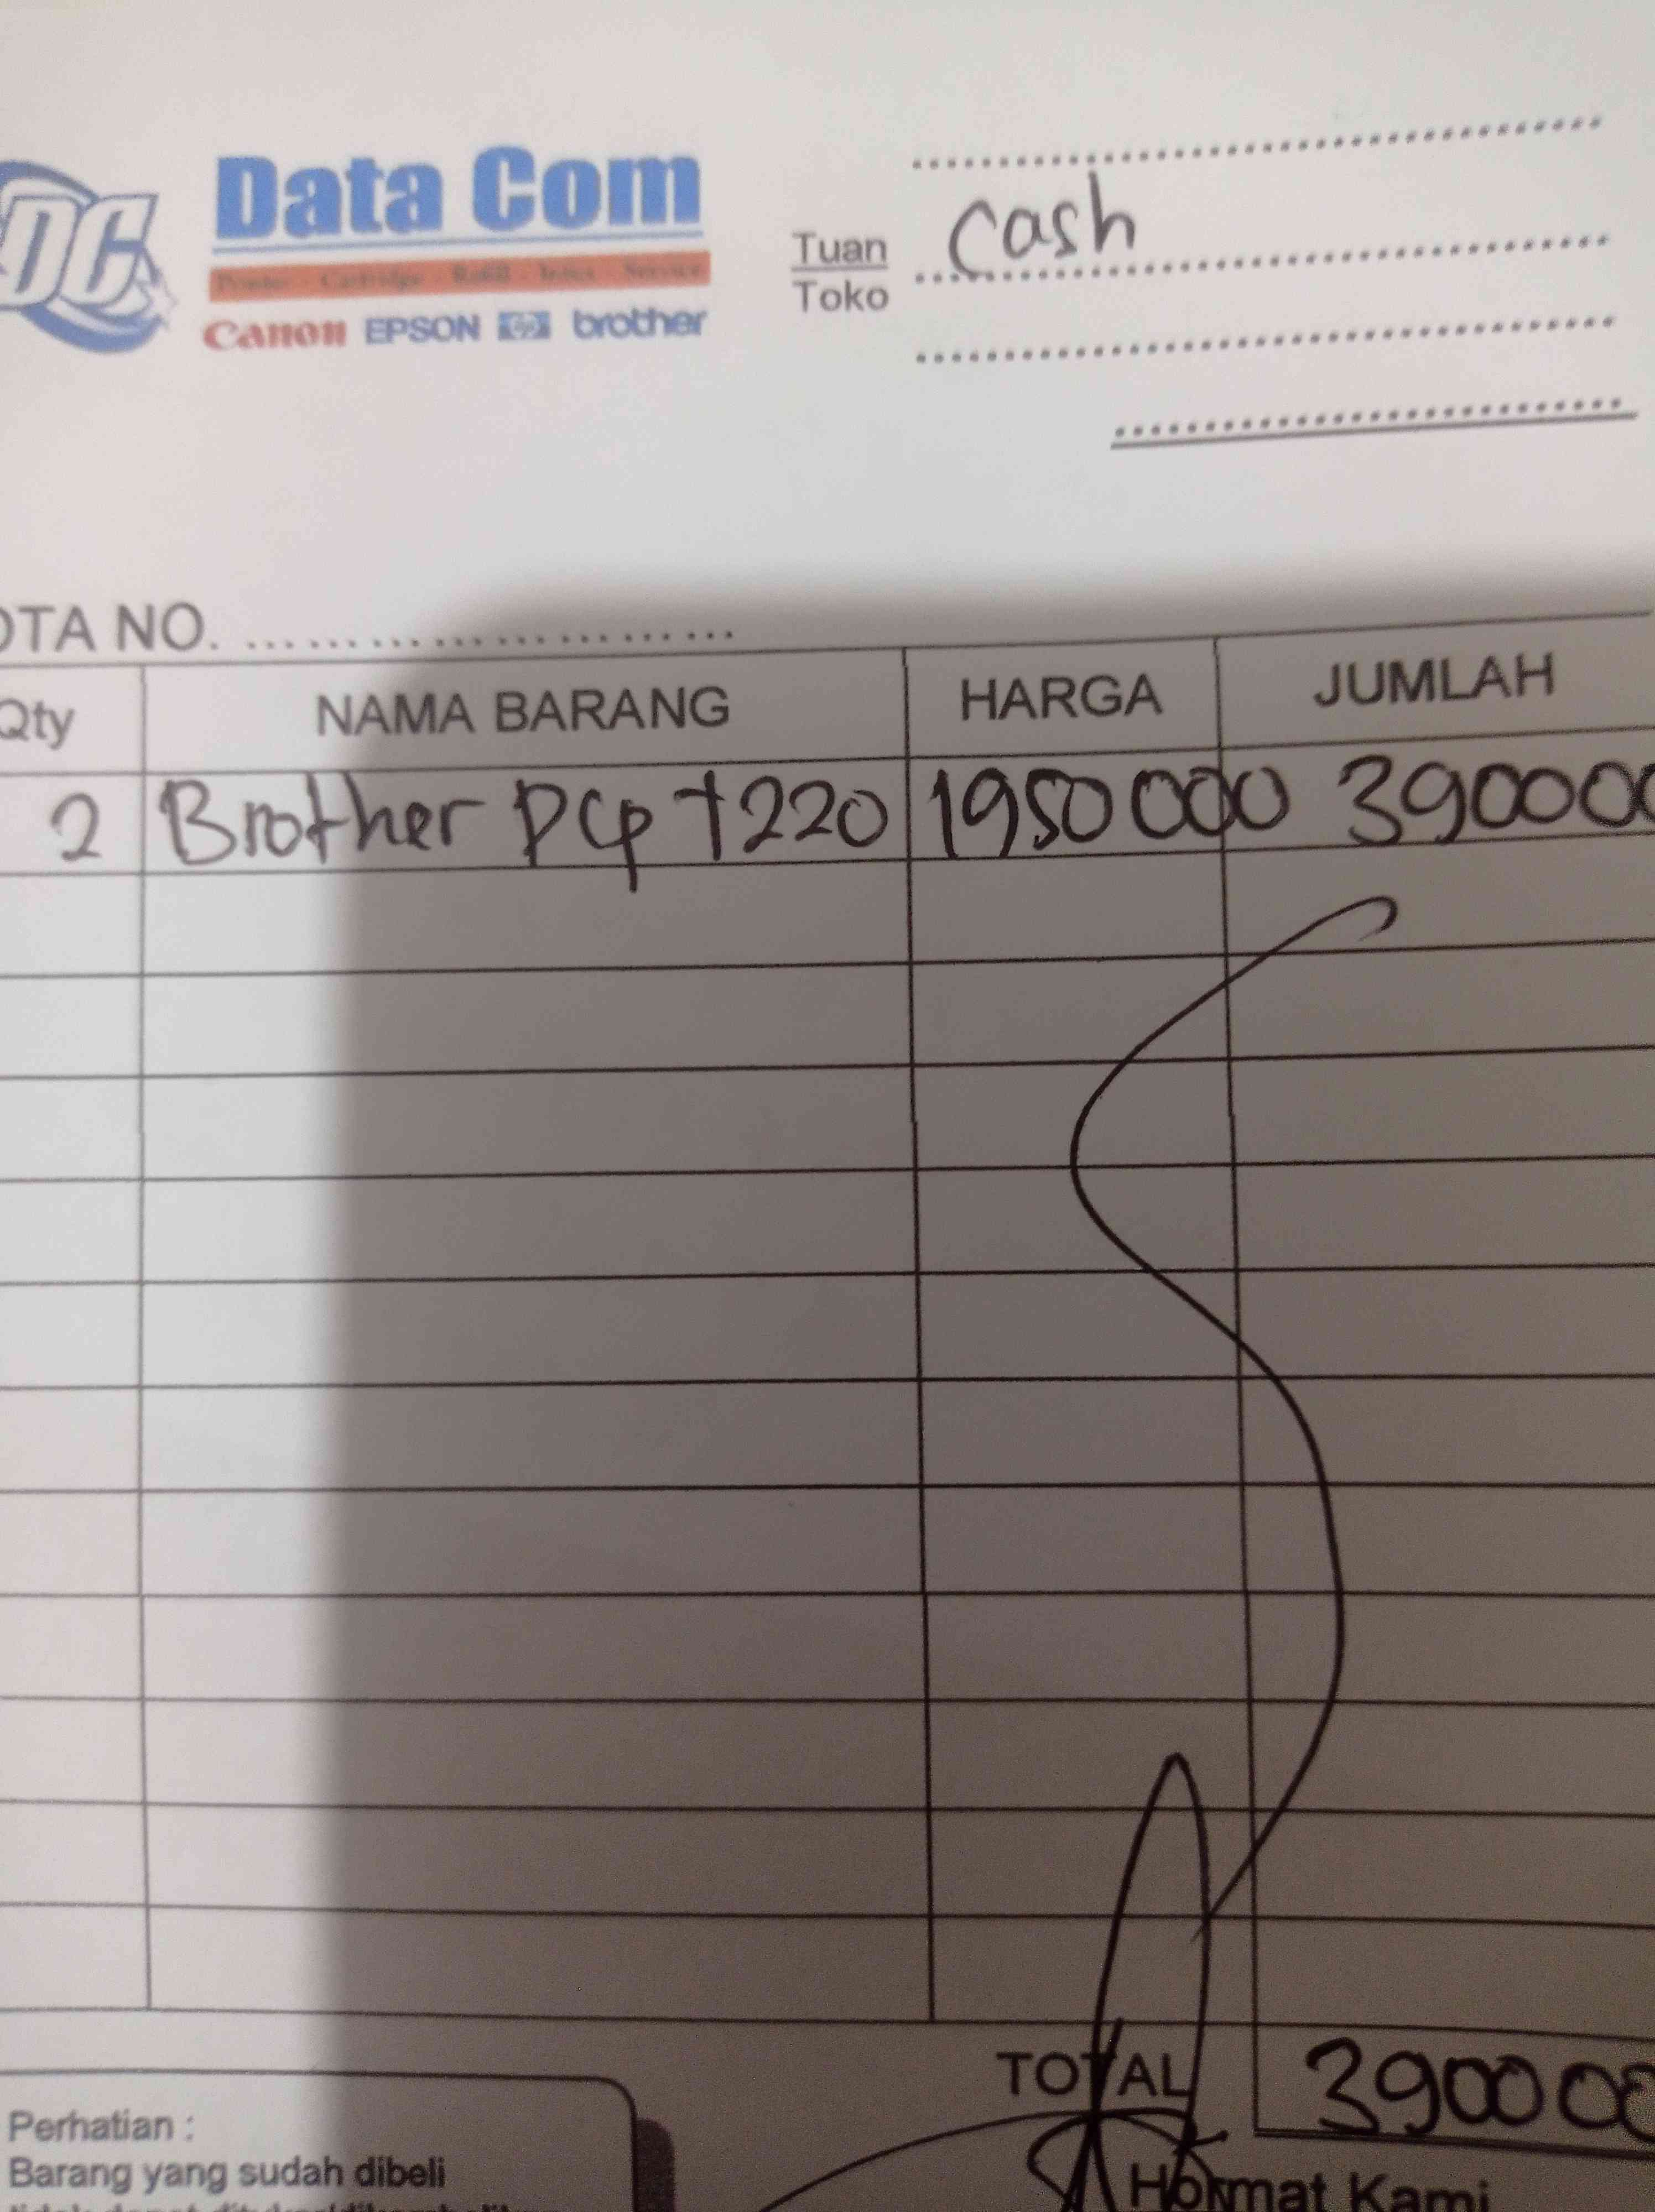 DC
Data Com
Printer - Cartridge - Refill - Infus - Service
Canon EPSON hp brother
Tuan
Toko
Cash
OTA NO. ..........................
Qty NAMA BARANG HARGA JUMLAH
2 Brother Dcp T220 1950000 390000
TOTAL 390000
Perhatian :
Barang yang sudah dibeli
Hormat Kami